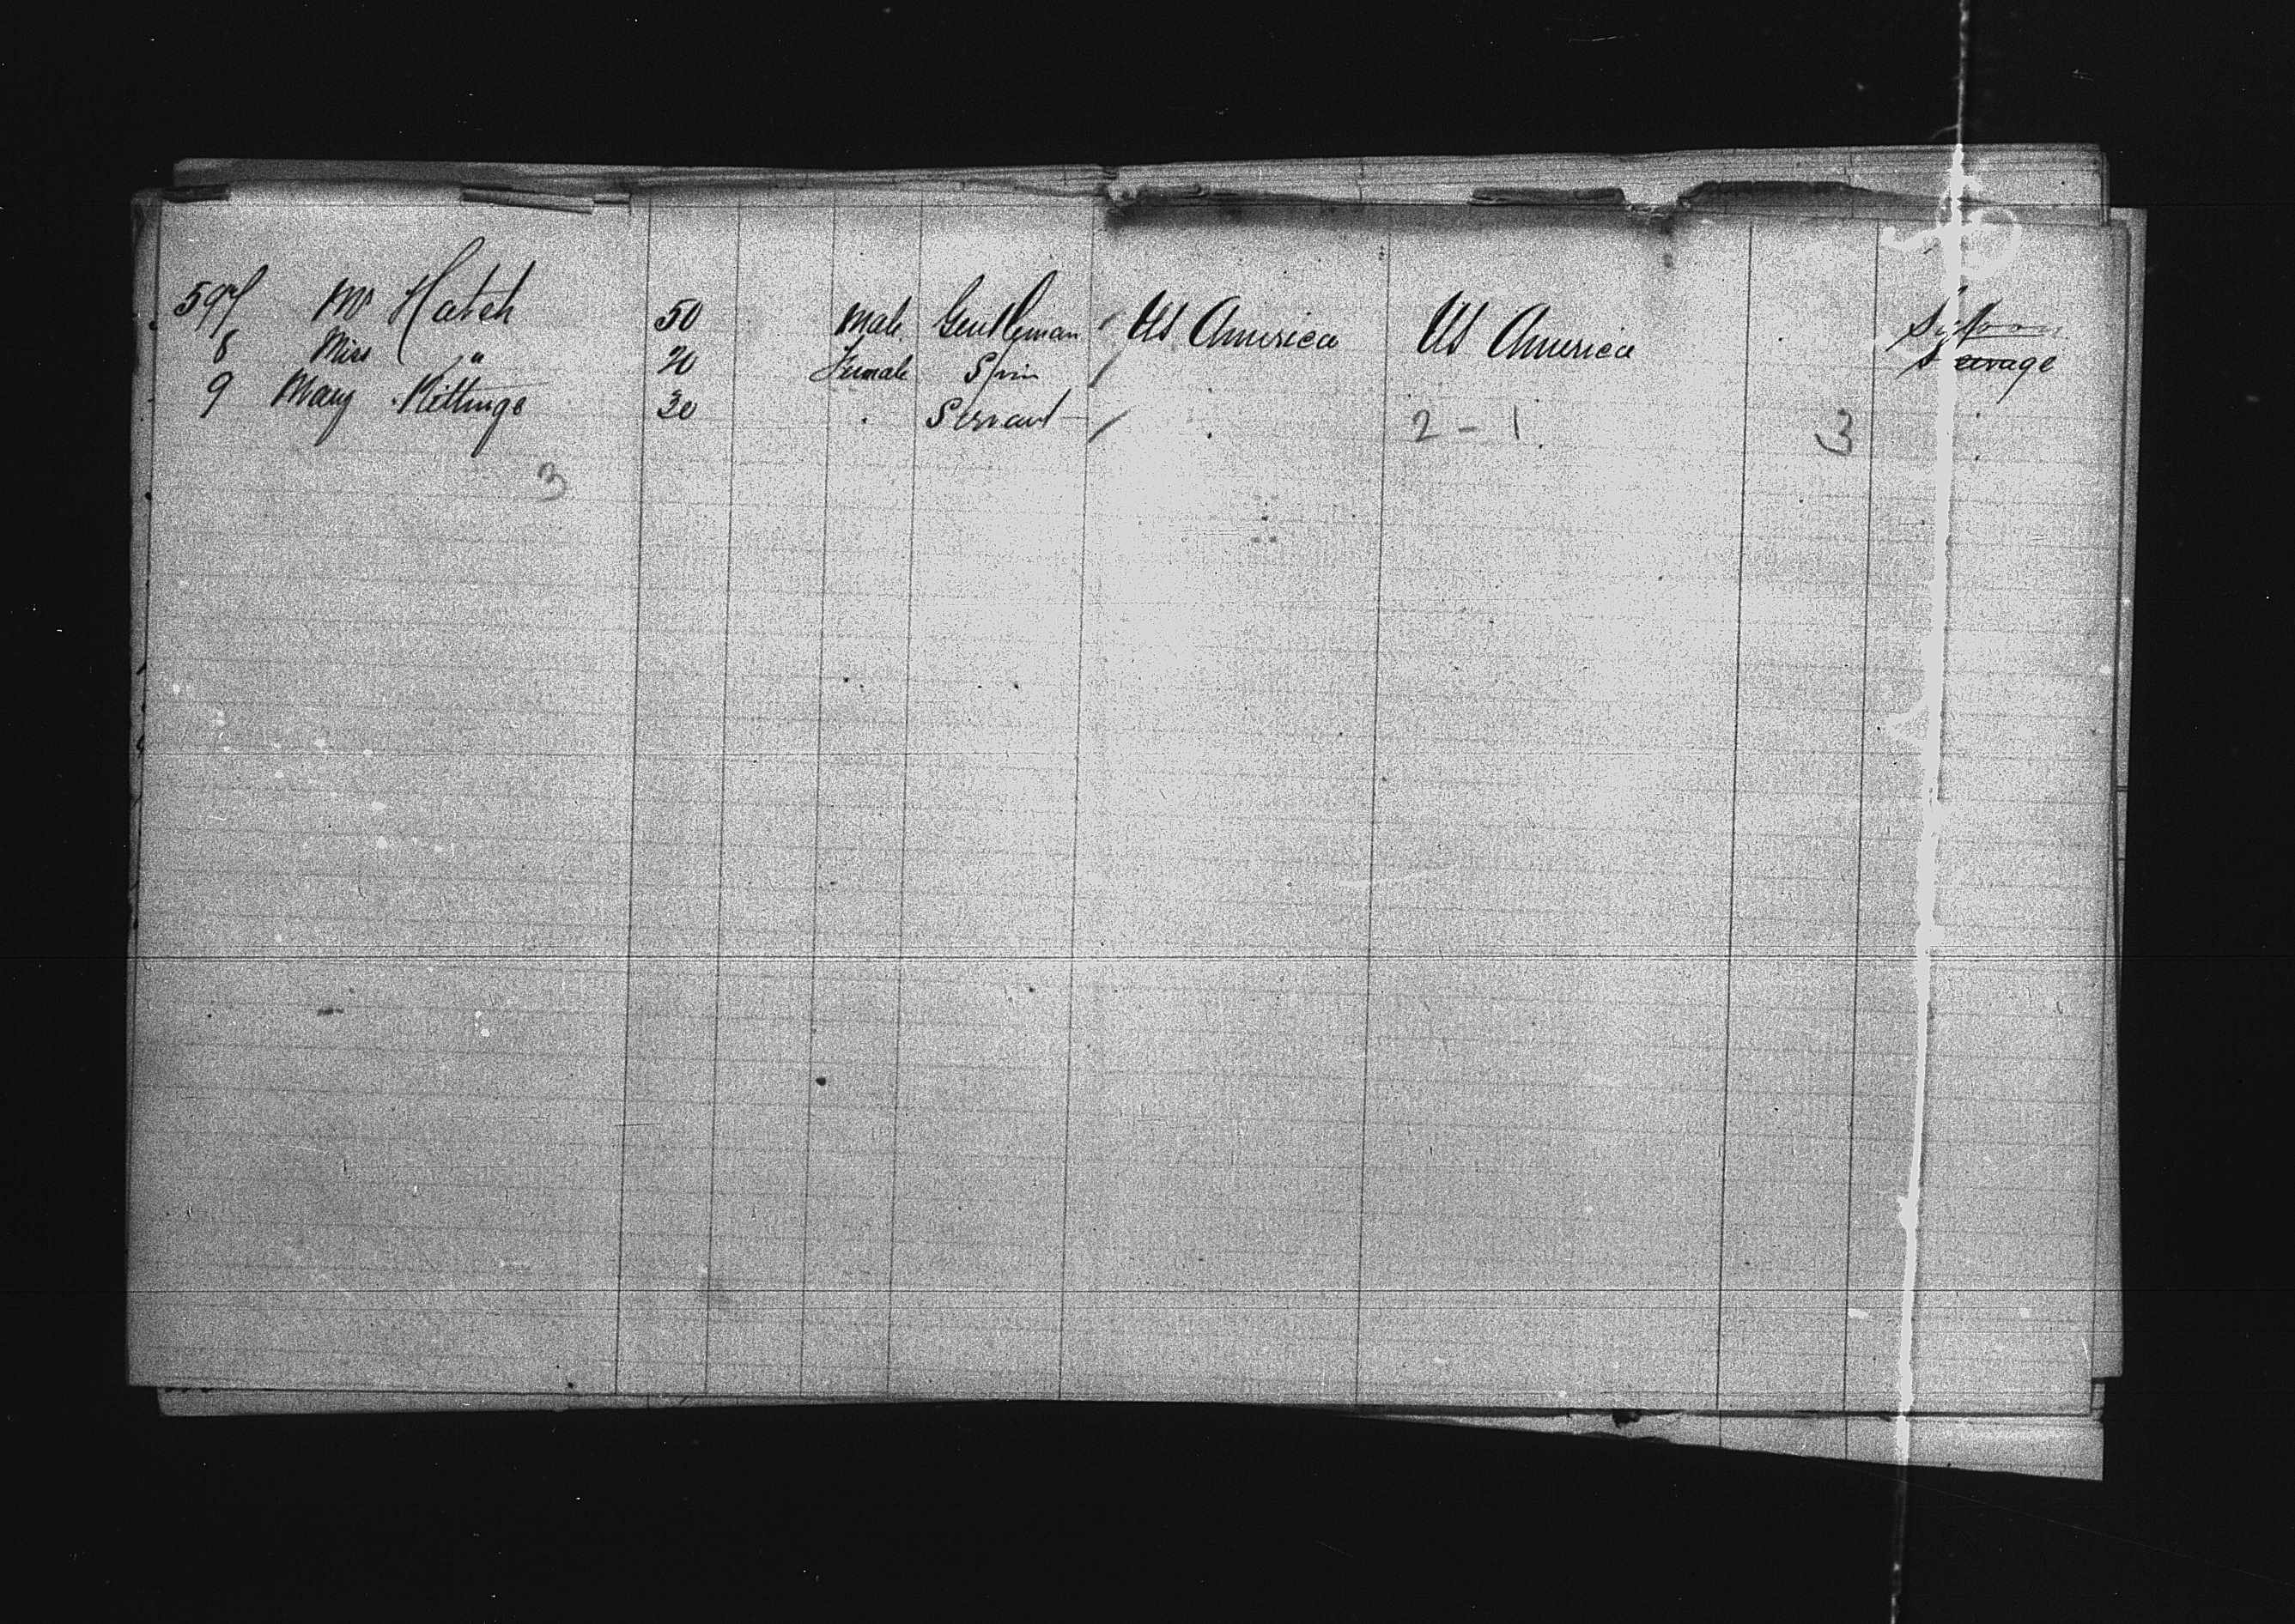 597 Mr Hatch 50 Male Gentleman / US America US America
8 Miss " 20 Female Spin /
9 Mary 30 . Servant / . 2 - 1 3
3